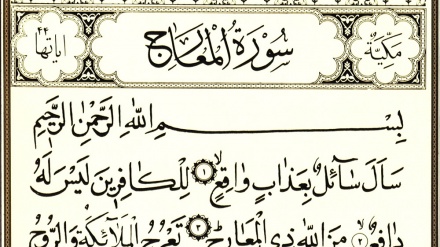 مكية سورة المعارج آياتها ٤٤
بِسْمِ اللهِ الرَّحْمٰنِ الرَّحِيمِ
سَاَلَ سَٓائِلٌ بِعَذَابٍ وَاقِعٍۙ ١ لِلْكَافِرٖينَ لَيْسَ لَهُ
دَافِعٌۙ ٢ مِنَ اللهِ ذِي الْمَعَارِجِؕ ٣ تَعْرُجُ الْمَلٰٓئِكَةُ وَالرُّوحُ